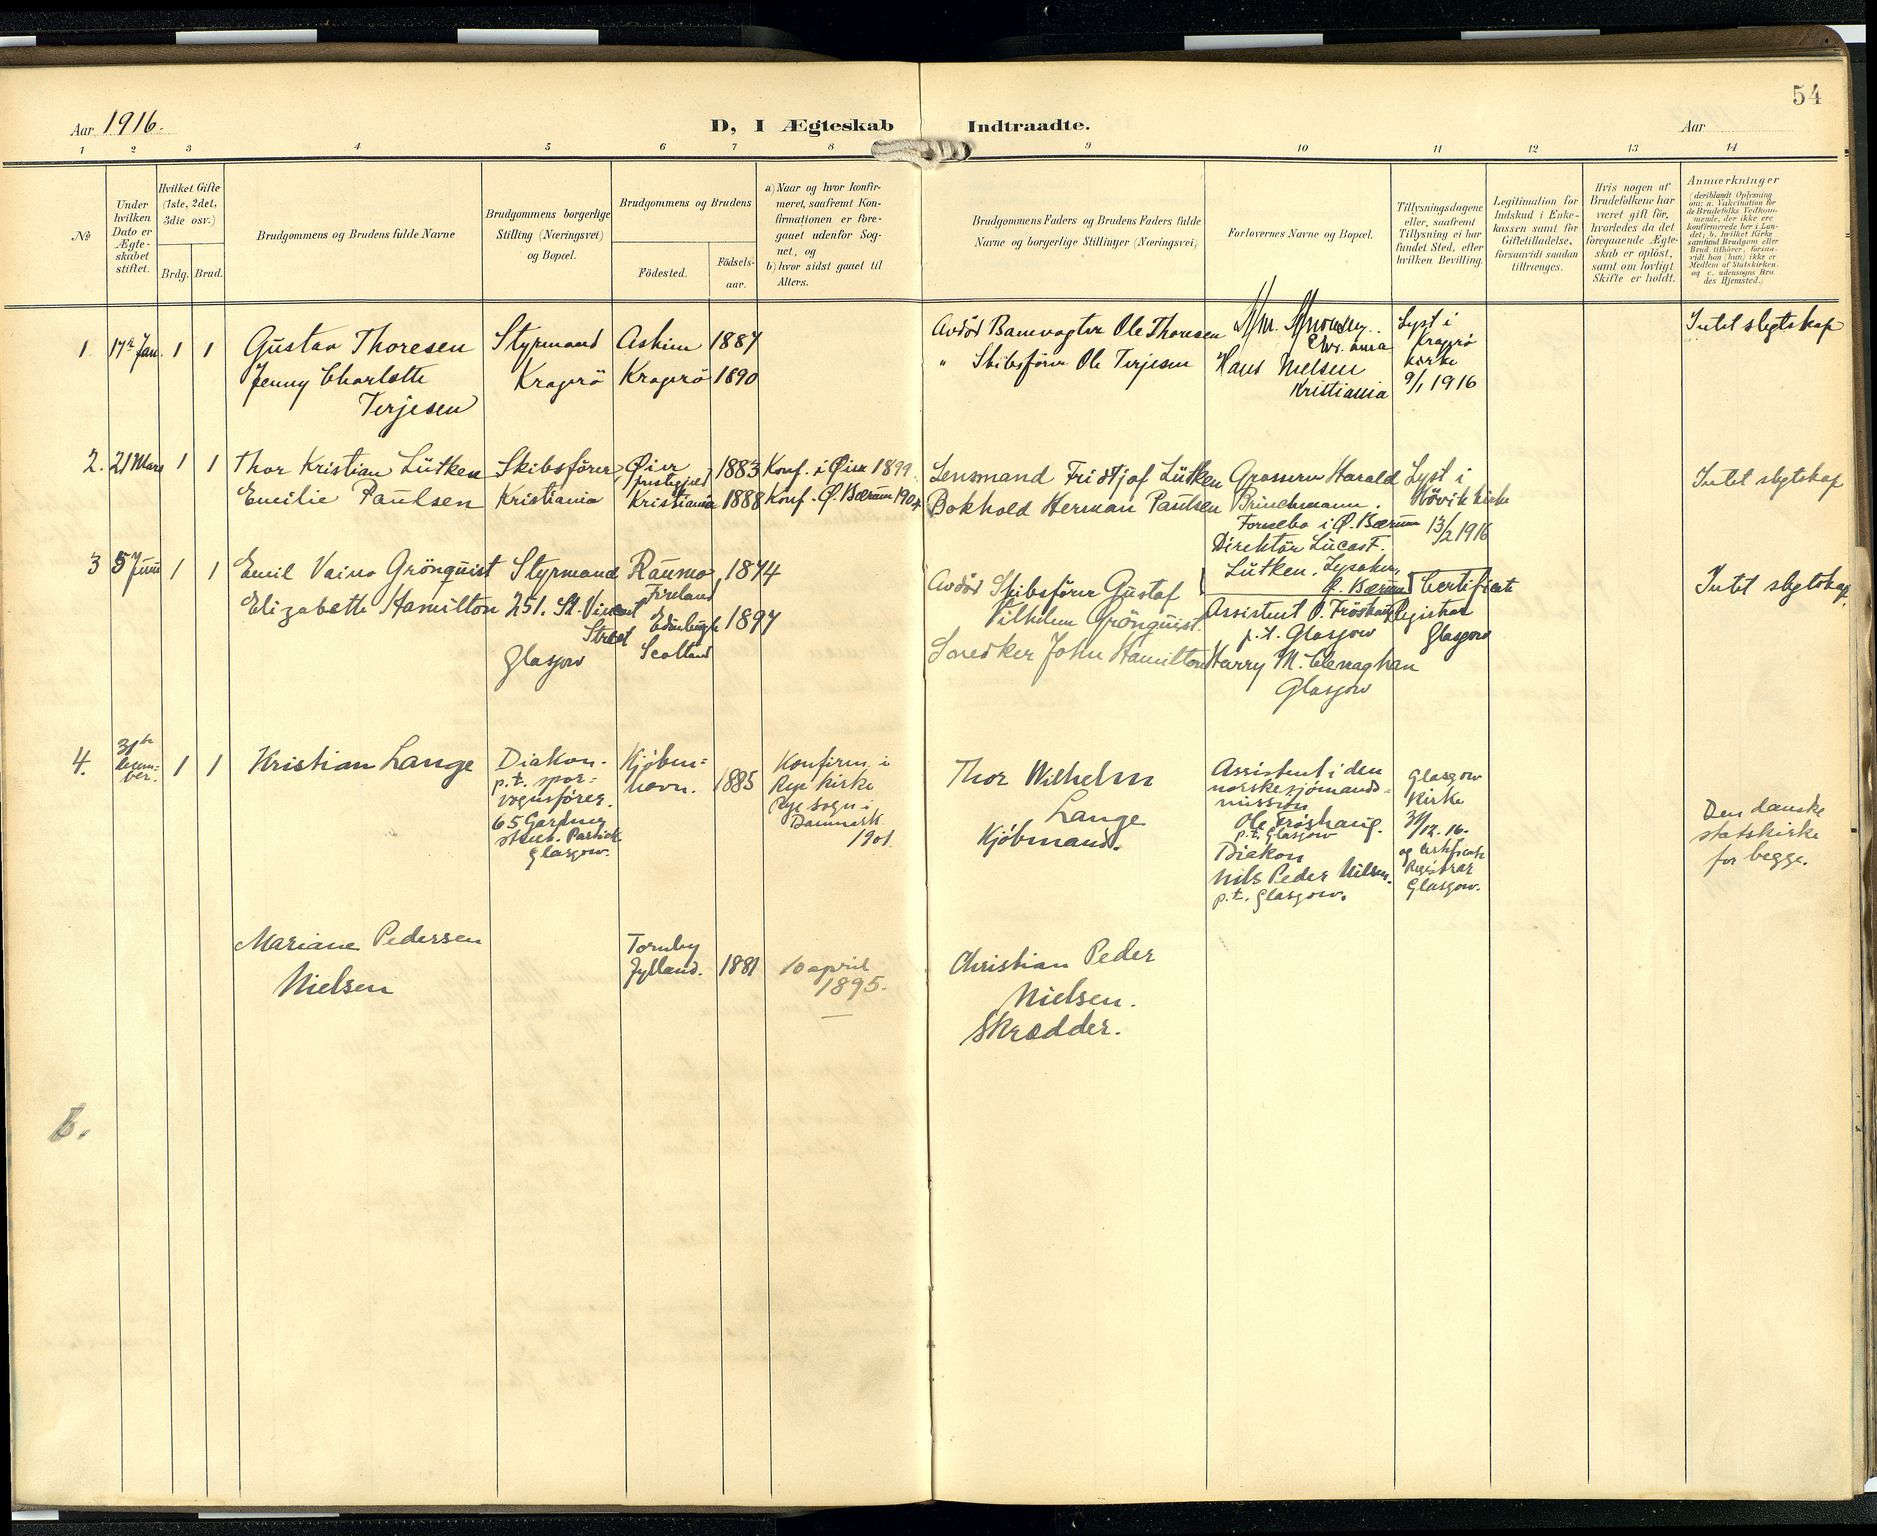 54
Aar 1916.
D, I Ægteskab Indtraadte.
Aar
1 2 3 4 5 6 7 8 9 10 11 12 13 14
No
Under hvilken Dato er Ægte-skabet stiftet.
Hvilket Gifte (1ste, 2det, 3die osv.)
Brdg. Brud.
Brudgommens og Brudens fulde Navne
Brudgommens borgerlige Stilling (Næringsvei) og Bopæl.
Brudgommens og Brudens
Födested.
Födsels-aar.
a) Naar og hvor konfir-meret, saafremt Kon-firmationen er fore-gaaet udenfor Sog-net, og
b) hvor sidst gaaet til Alters.
Brudgommens Faders og Brudens Faders fulde Navne og borgerlige Stillinger (Næringsvei)
Forlovernes Navne og Bopæl.
Tillysningsdagene eller, saafremt Tillysning ei har fundet Sted, efter hvilken Bevilling.
Legitimation for Indskud i Enke-kassen samt for Giftetilladelse, forsaavidt saadan tiltrænges.
Hvis nogen af Brudefolkene har været gift för, hvorledes da det foregaaende Ægte-skab er oplöst, samt om lovligt Skifte er holdt.
Anmærkninger
(deriblandt Oplysning om: a. Vakcination for de Brudefolks Vedkom-mende, der ikke ere konfirmerede her i Lan-det; b. hvilket Kirke-samfund Brudgom eller Brud tilhörer, forsaa-vidt han (hun) ikke er Medlem af Statskirken, og c. udensogns Bru-des Hjemsted.)
1. 17de Jan. 1 1
Gustav Thoresen
Jenny Charlotte
Terjesen
Styrmand
Kragerö
Askim 1887
Kragerö 1890
Avdød Banevogter Ole Thoresen
" Skibsförer Ole Terjesen
Hans Nielsen
Kristiania
Lyst i
Kragerö
kirke
9/1 1916
Intet slegtskap
2. 21 Mars 1 1
Thor Kristian Lütken
Emilie Paulsen
Skibsförer
Kristiania
Øier
prestegjeld
Kristiania
1883
1888
Konf. i Øier 1899
Konf. Ø. Bærum 1904
Lensmand Fridtjof Lütken
Bokhold Herman Paulsen
Grosserer Harald
Brinchmann.
Fornebo i Ø. Bærum
Direktör Lucas F.
Lütken. Lysaker,
Ø. Bærum
Lyst i
Hövik kirke
13/2 1916
Intet slegtskap
3 5 Juni 1 1
Emil Vaino Grönquist
Elizabeth Hamilton
Styrmand
251. St. Vincent
Street
Glasgow
Raumo,
Finland
Edinburgh
Scotland
1874
1897
Avdöd Skibsförer Gustaf
Vilhelm Grönquist.
Snedker John Hamilton
Assistent O. Fröshaug
p.t. Glasgow
Harry M. Clenaghan
Glasgow
Certificate
Registrar
Glasgow
Intet slegtskap
4. 31te Decem-ber. 1 1
Kristian Lange
Diakon-
p.t. spor-
vognsfører.
65 Gardner
street. Partick
Glasgow.
Kjøben-
havn.
1885
Konfirm. i
Rye kirke
Rye sogn i
Danmark
1901
Thor Wilhelm
Lange
Kjöbmand.
Assistent i den
norske sjömands-
mission
Ole Frøshaug.
p.t. Glasgow
Diakon
Nils Peder Nilsen.
p.t. Glasgow.
Glasgow
Kirke
31/12. 16.
og certificate
Registrar
Glasgow.
Den danske
statskirke
for begge.
Mariane Pedersen
Nielsen
Tornby
Jylland.
1881
10 april
1895.
Christian Peder
Nielsen.
Skrædder.